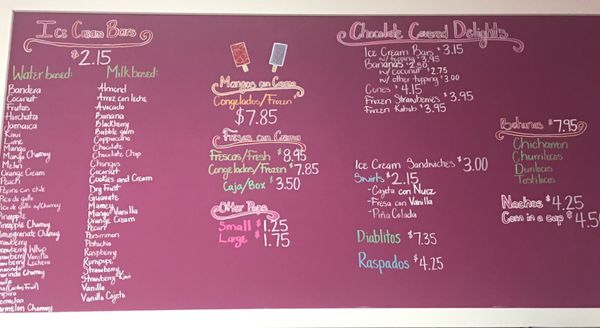 Ice Cream Bars
$2.15
Water based:
Bandera
Coconut
Frutas
Horchata
Jamaica
Kiwi
Lime
Mango
Mango Chamoy
Melon
Orange Cream
Peach
Pepino con chile
Pico de gallo
Pico de gallo w/Chamoy
Pineapple
Pineapple Chamoy
Pomegranate Chamoy
Strawberry
Strawberry
Strawberry Lechera
Tamarindo
Tamarindo Chamoy
(Cactus Fruit)
Watermelon
Watermelon Chamoy
Milk based:
Almond
Arroz con leche
Avocado
Banana
Blackberry
Bubble gum
Cappuccino
Chocolate
Chocolate Chip
Chongos
Coconut
Cookies and Cream
Dry Fruit
Guanabana
Mamey
Mango/Vanilla
Orange Cream
Pecan
Persimmon
Pistachio
Raspberry
Rompope
Strawberry
Strawberry Kiwi
Vanilla
Vanilla Cajeta
Mangos con Crema
Congelados/Frozen
$7.85
Fresas con Crema
Frescas/Fresh $8.95
Congelados/Frozen $7.85
Caja/Box $3.50
Otter Pops
Small $1.25
Large $1.75
Chocolate Covered Delights
Ice Cream Bars $3.15
w/topping $3.95
Bananas $2.50
w/coconut $2.75
w/other topping $3.00
Cones $4.15
Frozen Strawberries $3.95
Frozen Kabob $3.95
Ice Cream Sandwiches $3.00
Swirls $2.15
- Cajeta con Nuez
- Fresa con Vanilla
- Piña Colada
Diablitos $7.35
Raspados $4.25
Botanas $7.95
Chicharron
Churrilocos
Durilocos
Tostilocos
Nachos $4.25
Corn in a cup $4.50